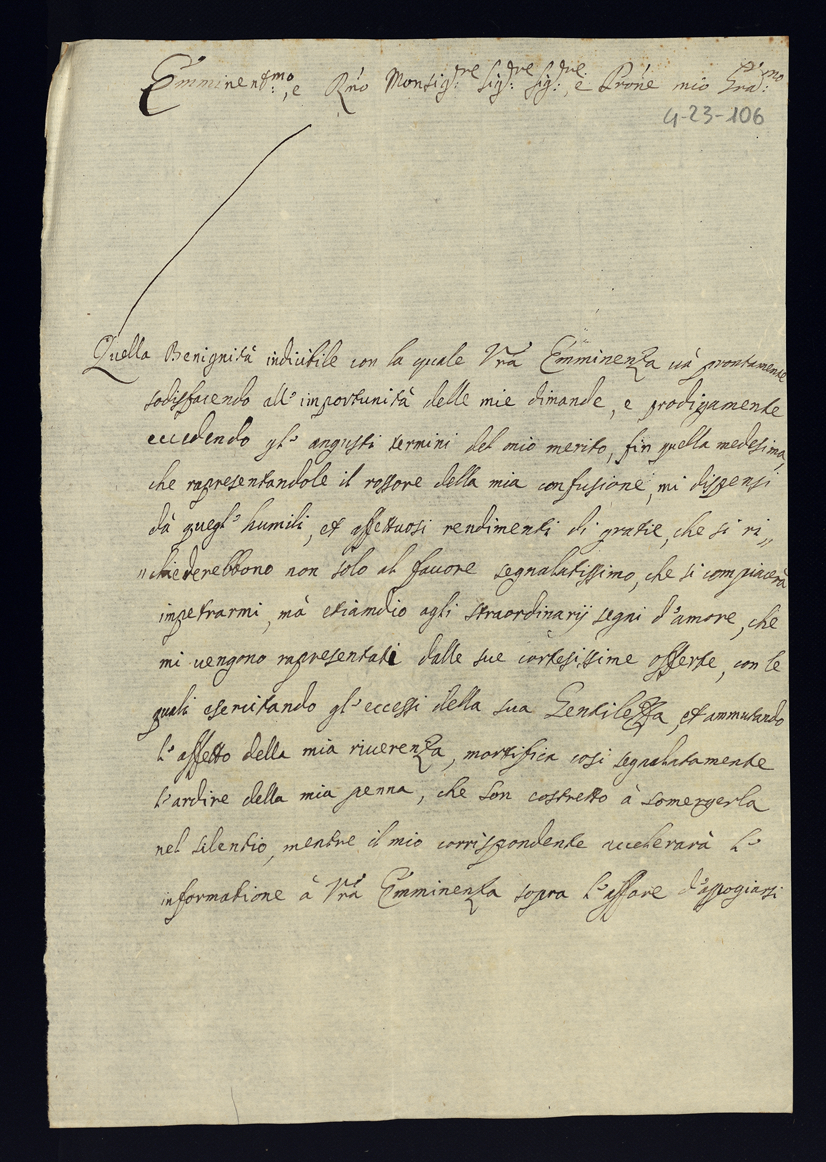 Emminent:mo, e Rño Monsig:re Sig:re Sig:re, e Prone mio Gra:mo
4-23-106
Quella Benignità indicibile con la quale Vrã Emminenza và prontamente
sodisfacendo all' importunità delle mie dimande, e prodigamente
eccedendo gl' angusti termini del mio merito, fin quella medesima,
che rapresentandole il rossore della mia confusione, mi dispensi
dà quegl' humili, et affettuosi rendimenti di gratie, che si ri„
„chiederebbono non solo al favore segnalatissimo, che si compiacerà
impetrarmi, mà etiamdio agli straordinarij segni d'amore, che
mi vengono rapresentati dalle sue cortesissime offerte, con le
quali esercitando gl' eccessi della sua Gentilezza, et ammutando
l' affetto della mia riverenza, mortifica così segnalatamente
l' ardire della mia penna, che son costretto à somergerla
nel silentio, mentre il mio corrispondente accelerarà l'
informatione à Vrã Emminenza sopra l' affare d'appogiarsi